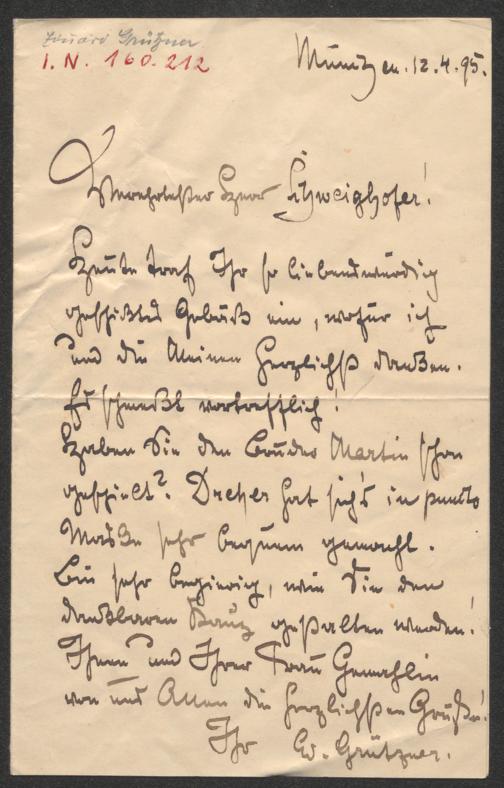 Eduard Grützner
I. N. 160.212
München. 12.4.95.
Verehrtester Herr Schweighofer!
Heute traf Ihr so liebenswürdig
geschicktes Gebäck ein, wofür ich
und die Meinen herzlichst danken.
Es schmeckt vortrefflich!
Haben Sie den Bruder Martin schon
gespielt? Dreher hat sich's in puncto
Maske sehr bequem gemacht.
Bin sehr begierig, wie Sie den
dankbaren Kauz gestalten werden!
Ihnen und Ihrer Frau Gemahlin
von uns Allen die herzlichsten Grüße!
Ihr Ed. Grützner.